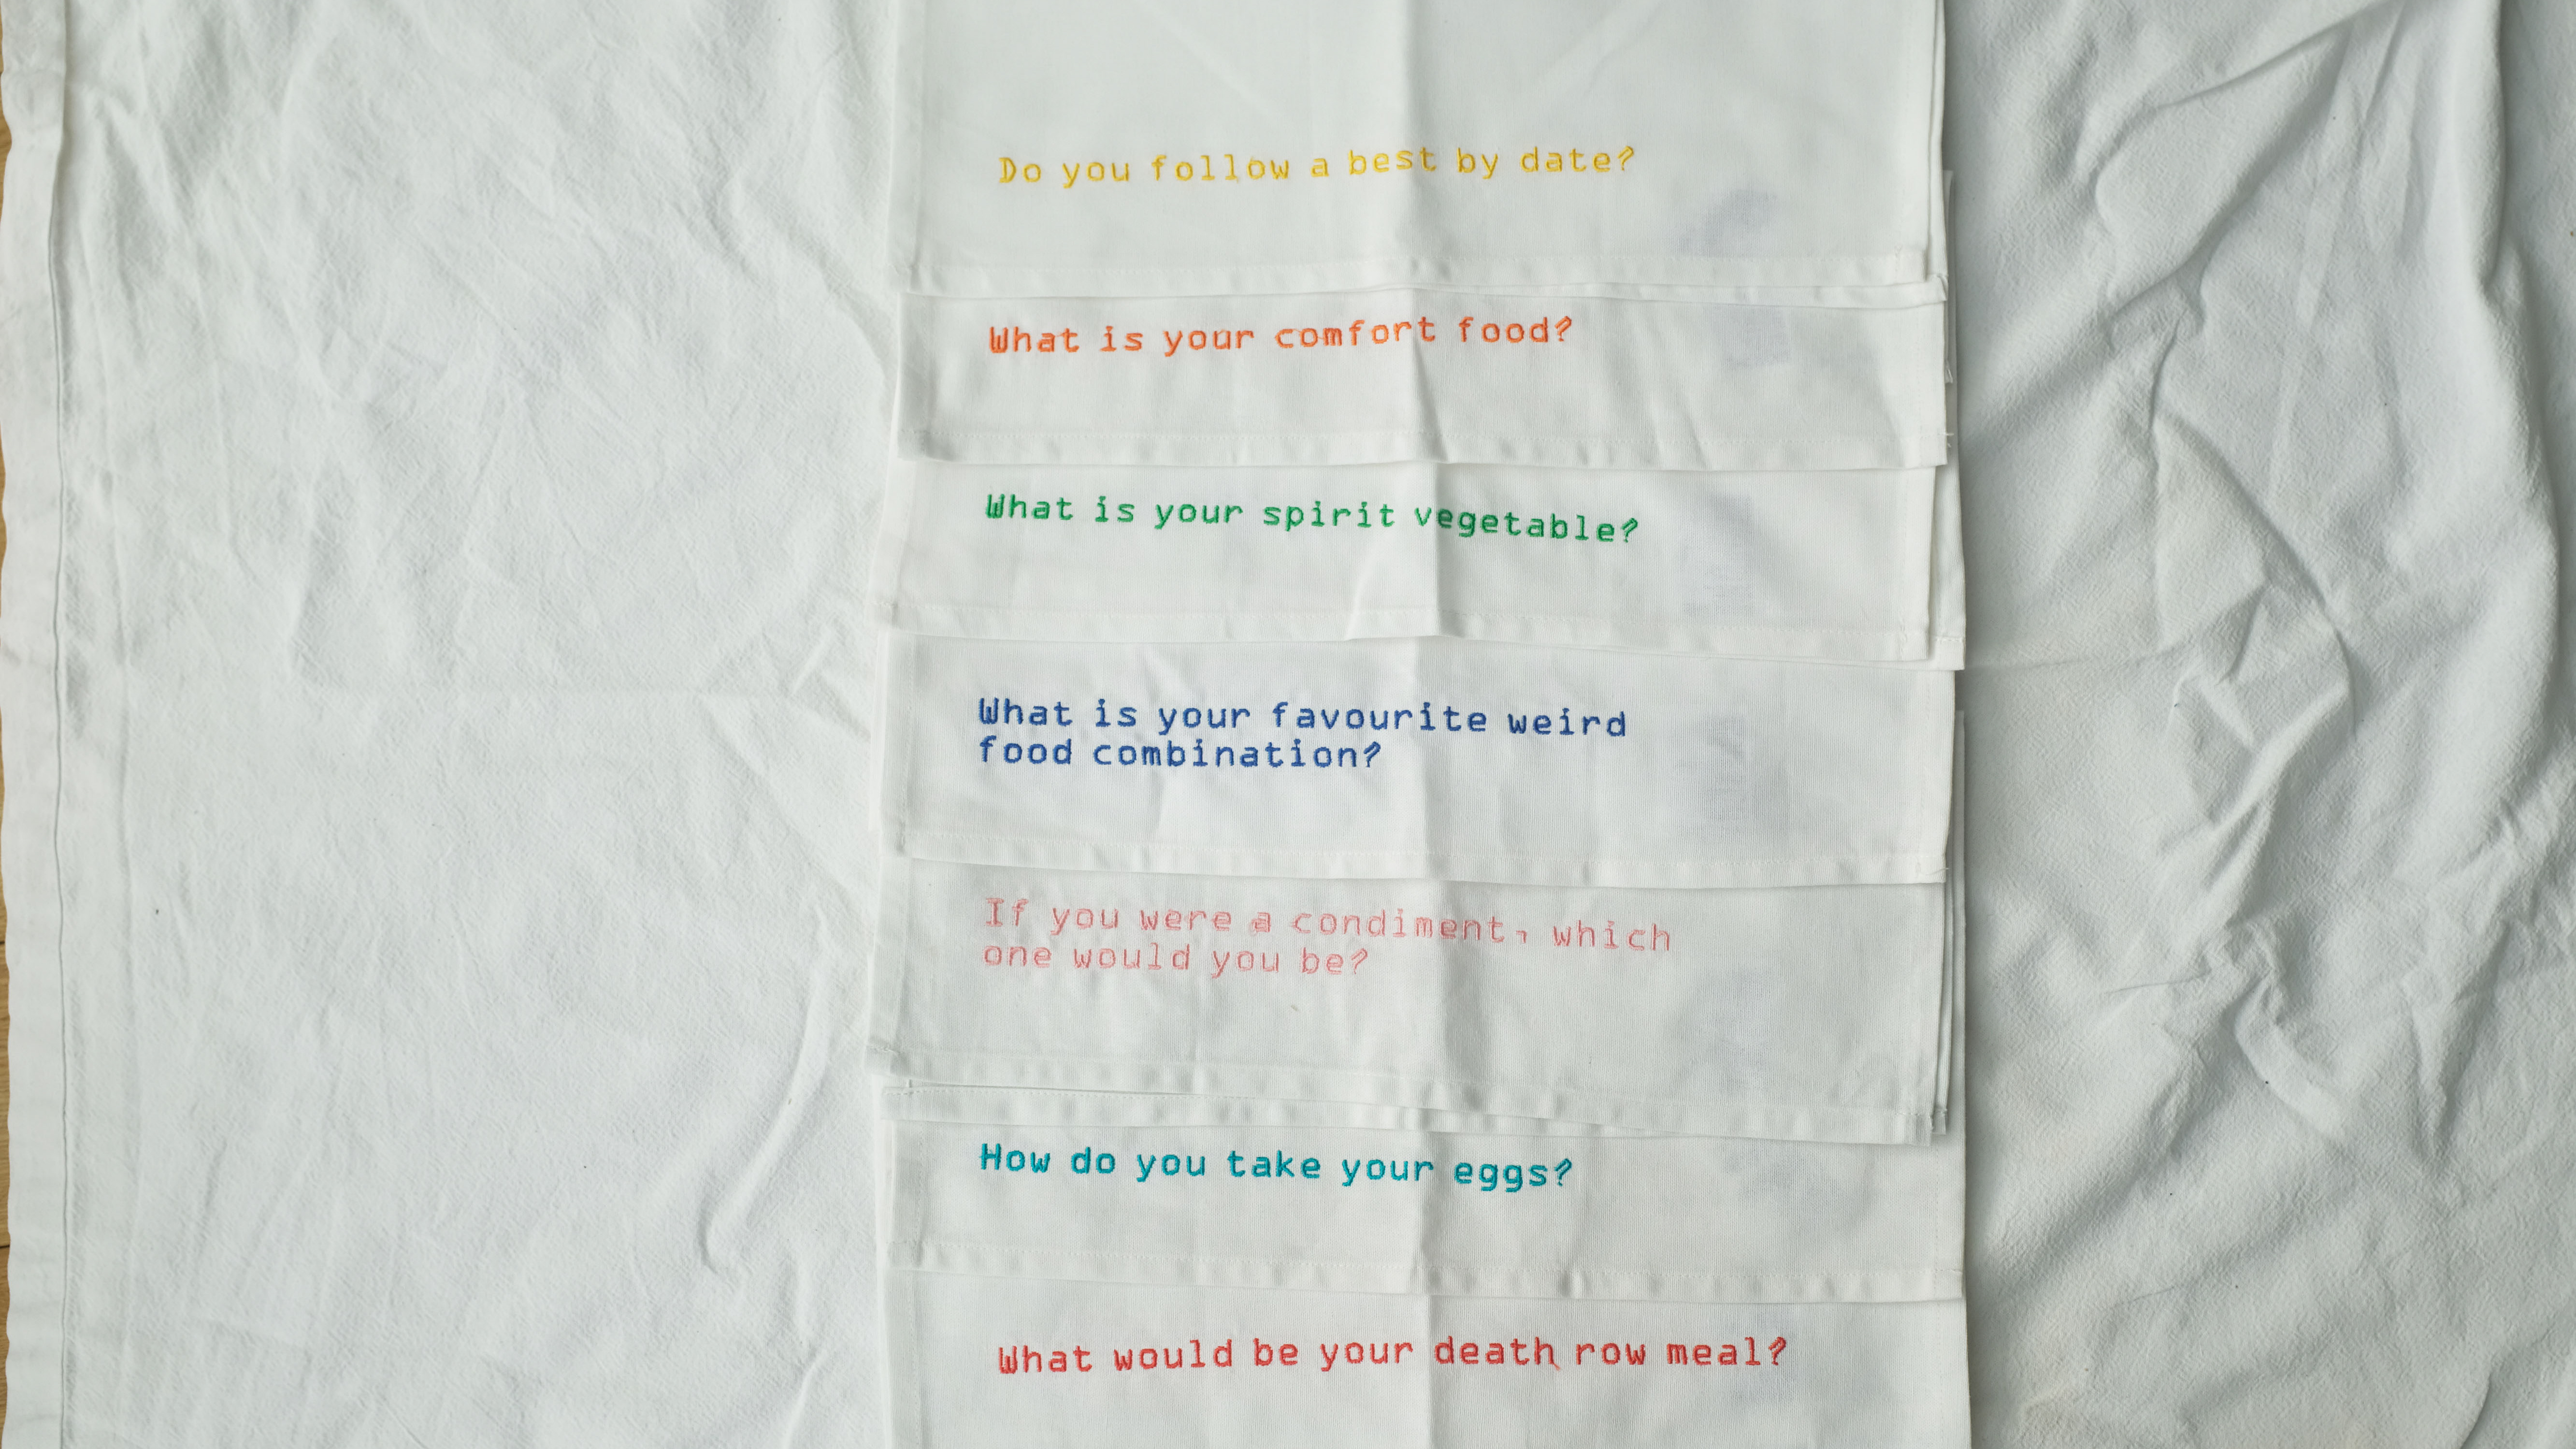 Do you follow a best by date?
What is your comfort food?
What is your spirit vegetable?
What is your favourite weird
food combination?
If you were a condiment, which
one would you be?
How do you take your eggs?
What would be your death row meal?